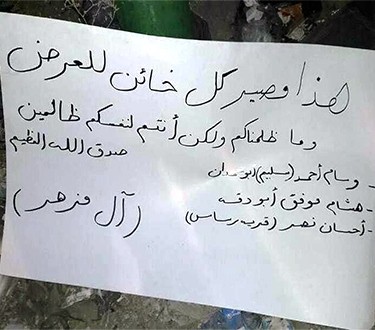 هذا مصير كل خائن للعرض
وما ظلمناكم ولكن أنتم لنفسكم ظالمين
صدق الله العظيم
- وسام أحمد (سليم)
- هشام موفق أبو دقه
- أحسان نصر (قرب رساس)
(آل مزهر)